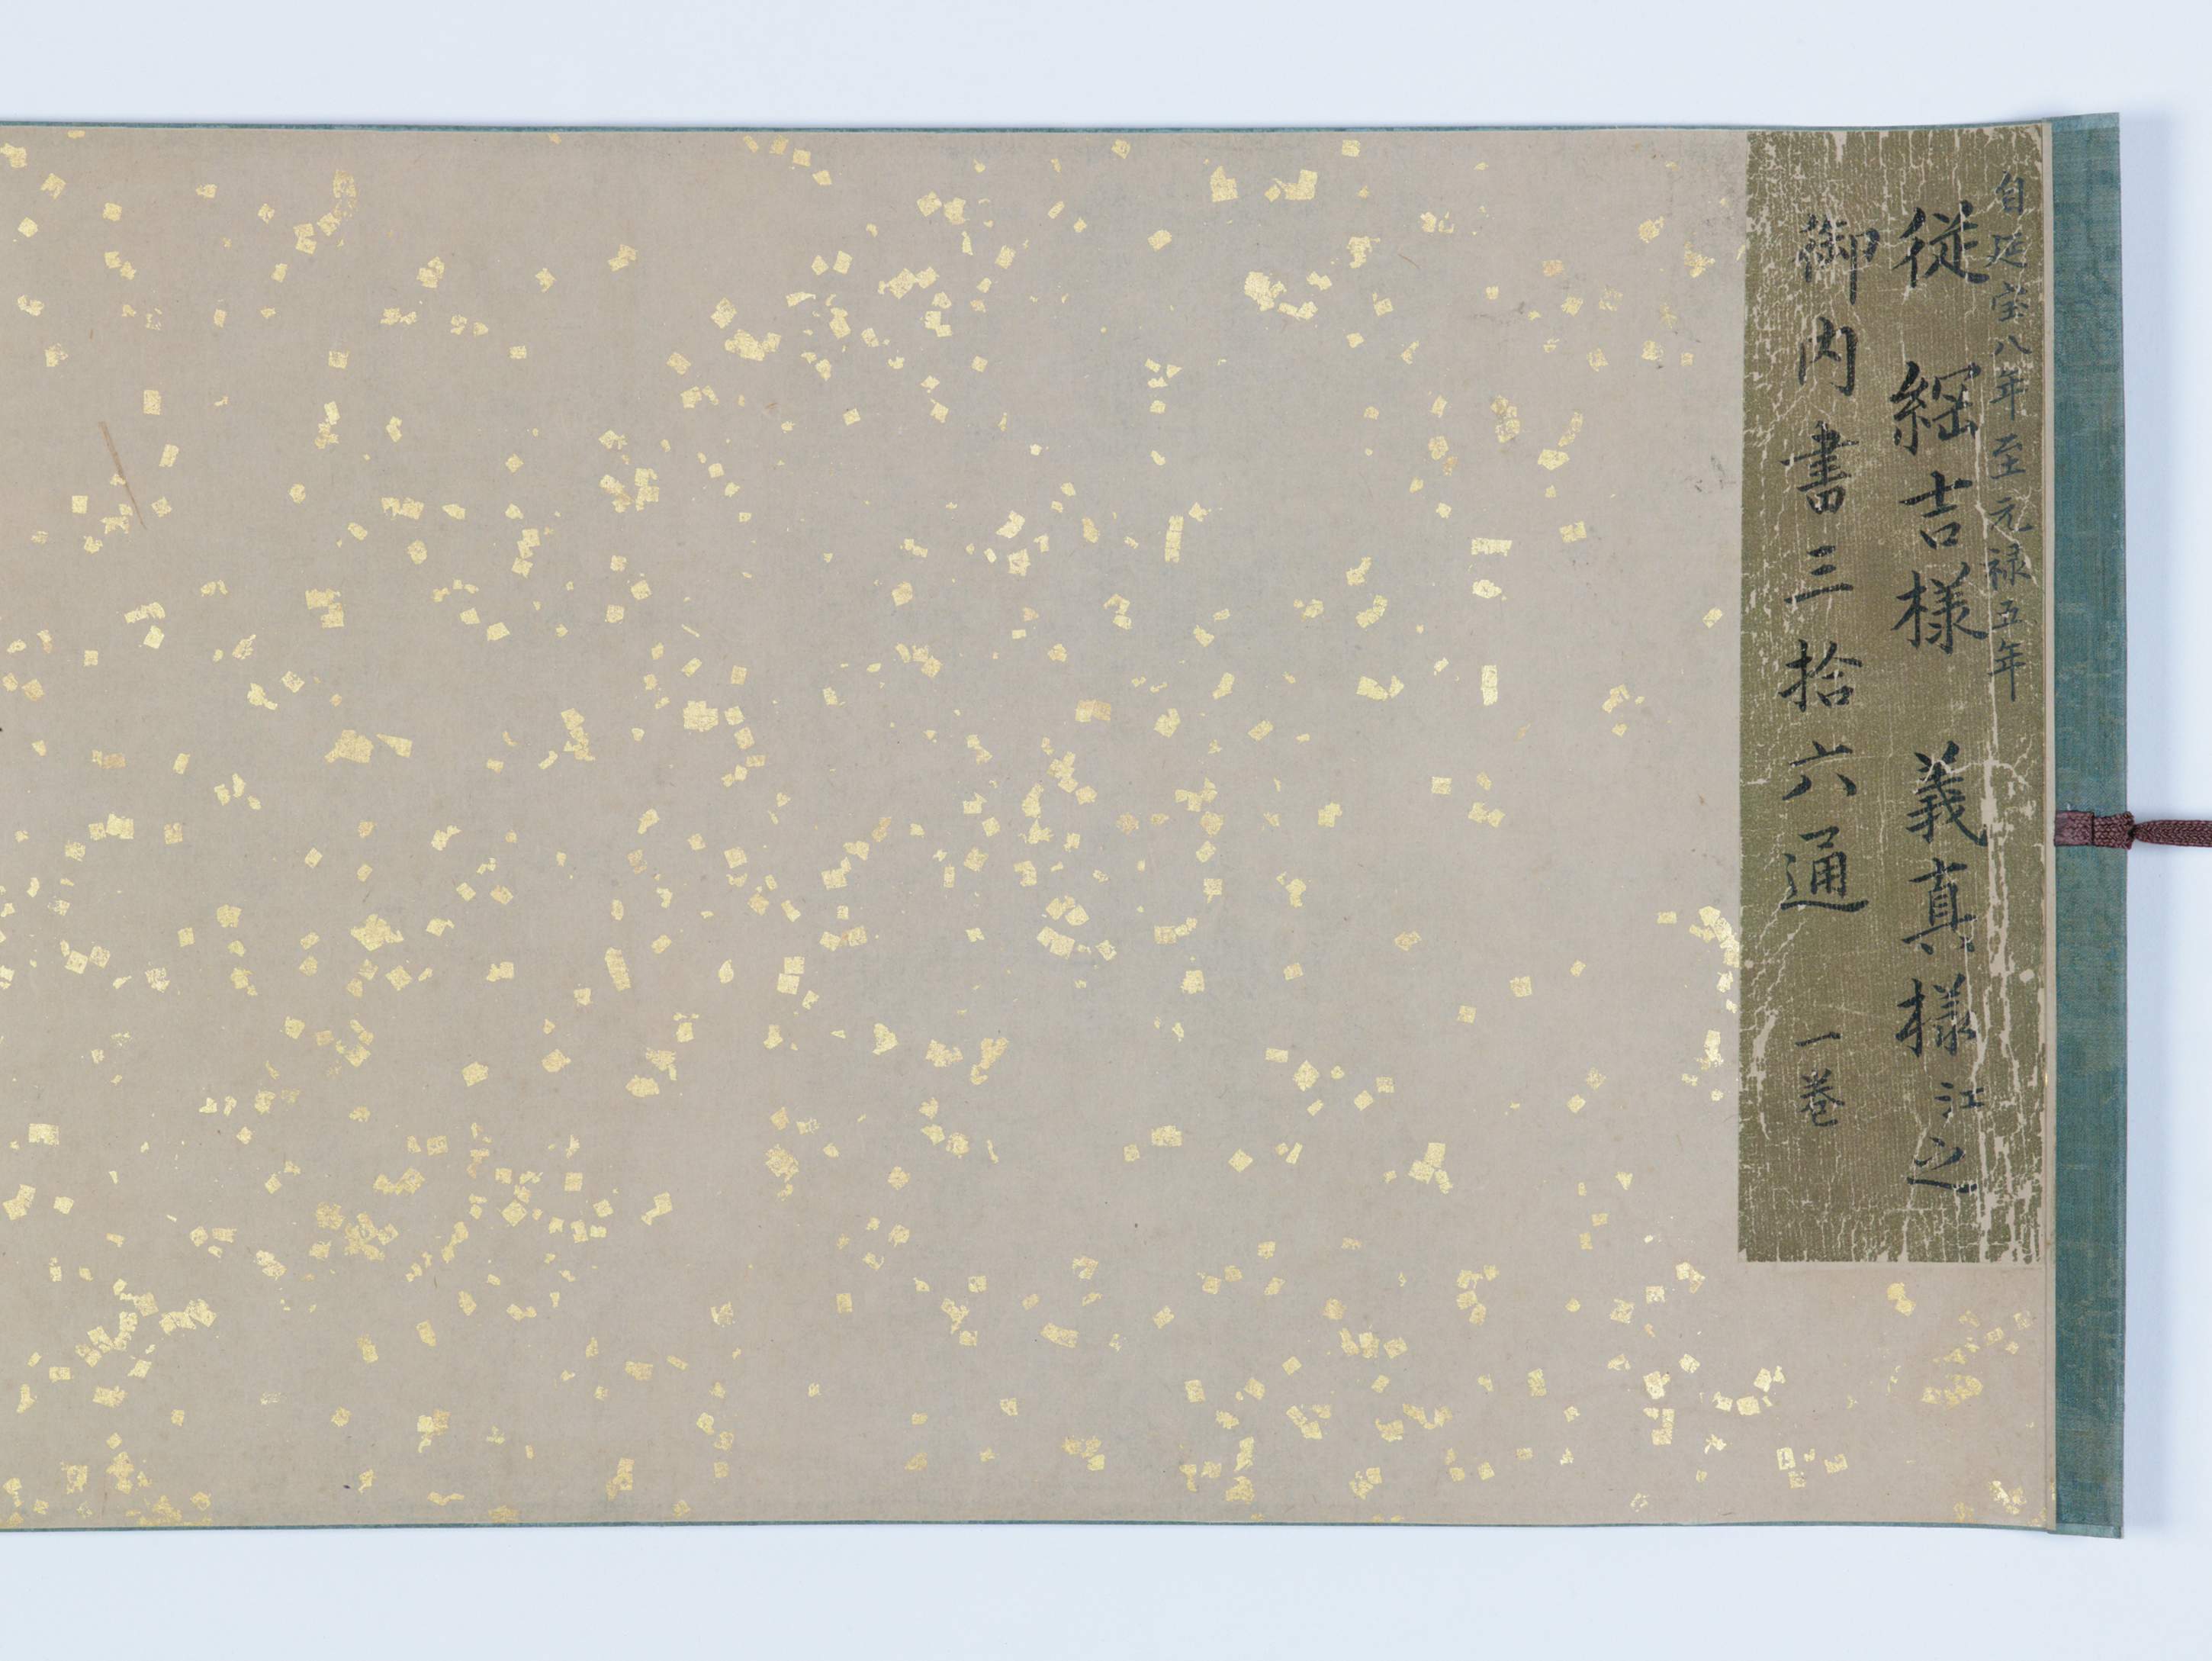 自延宝八年至元禄五年
従 綱吉様 義真様江之
御内書三拾六通 一巻